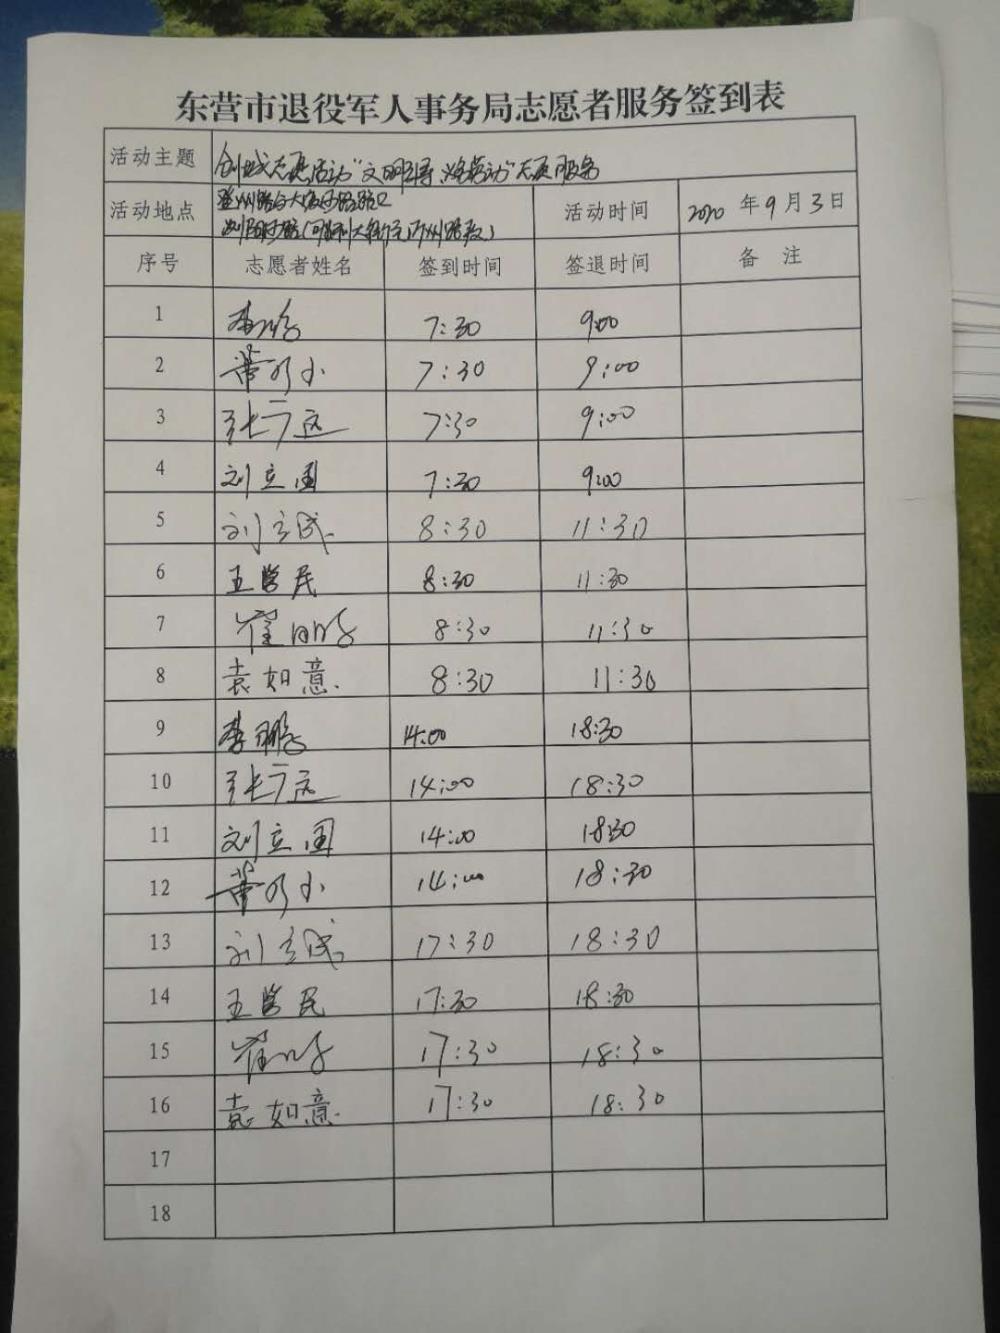 东营市退役军人事务局志愿者服务签到表
活动主题 创城志愿活动“文明引导 义务劳动”志愿服务
活动地点 活动时间 2020年9月3日
序号 志愿者姓名 签到时间 签退时间 备注
1 李鹏 7:30 9:00
2 7:30 9:00
3 张广远 7:30 9:00
4 刘立国 7:30 9:00
5 刘立成 8:30 11:30
6 王学民 8:30 11:30
7 崔明 8:30 11:30
8 袁如意. 8:30 11:30
9 李鹏 14:00 18:30
10 张广远 14:00 18:30
11 刘立国 14:00 18:30
12 14:00 18:30
13 刘立成 17:30 18:30
14 王学民 17:30 18:30
15 崔 17:30 18:30
16 袁如意. 17:30 18:30
17
18